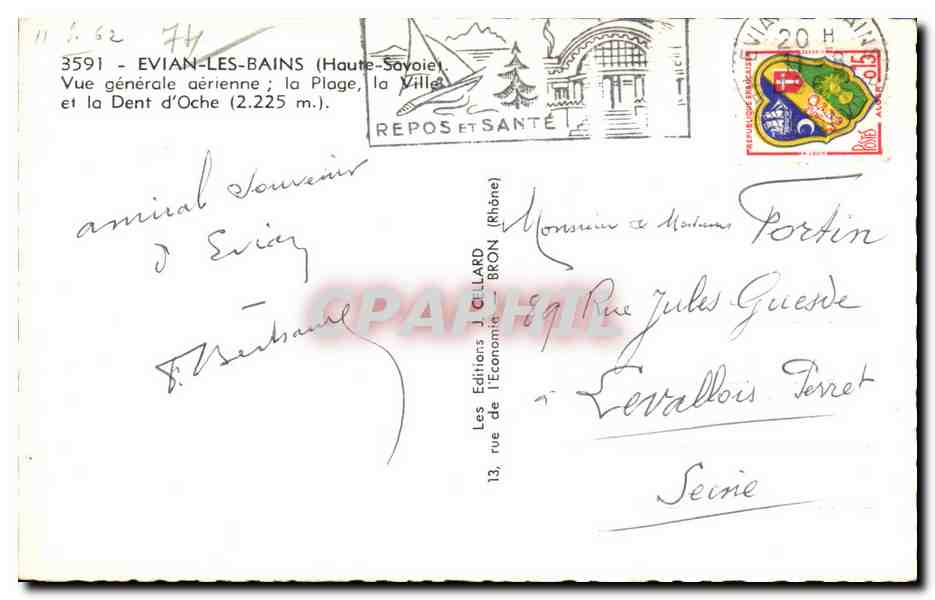 11 5. 62 74
3591 - EVIAN-LES-BAINS (Haute-Savoie).
Vue générale aérienne ; la Plage, la Ville
et la Dent d'Oche (2.225 m.).
REPOS ET SANTÉ
EVIAN BAINS
20 H
REPUBLIQUE FRANÇAISE
ALGER 0,15
POSTES
amical souvenir
d'Evian
F. Bertrand
Les Editions J. CELLARD
13, rue de l'Economie - BRON (Rhône)
Monsieur et Madame Fortin
89 Rue Jules Guesde
à Levallois Perret
Seine
CPAPHIL